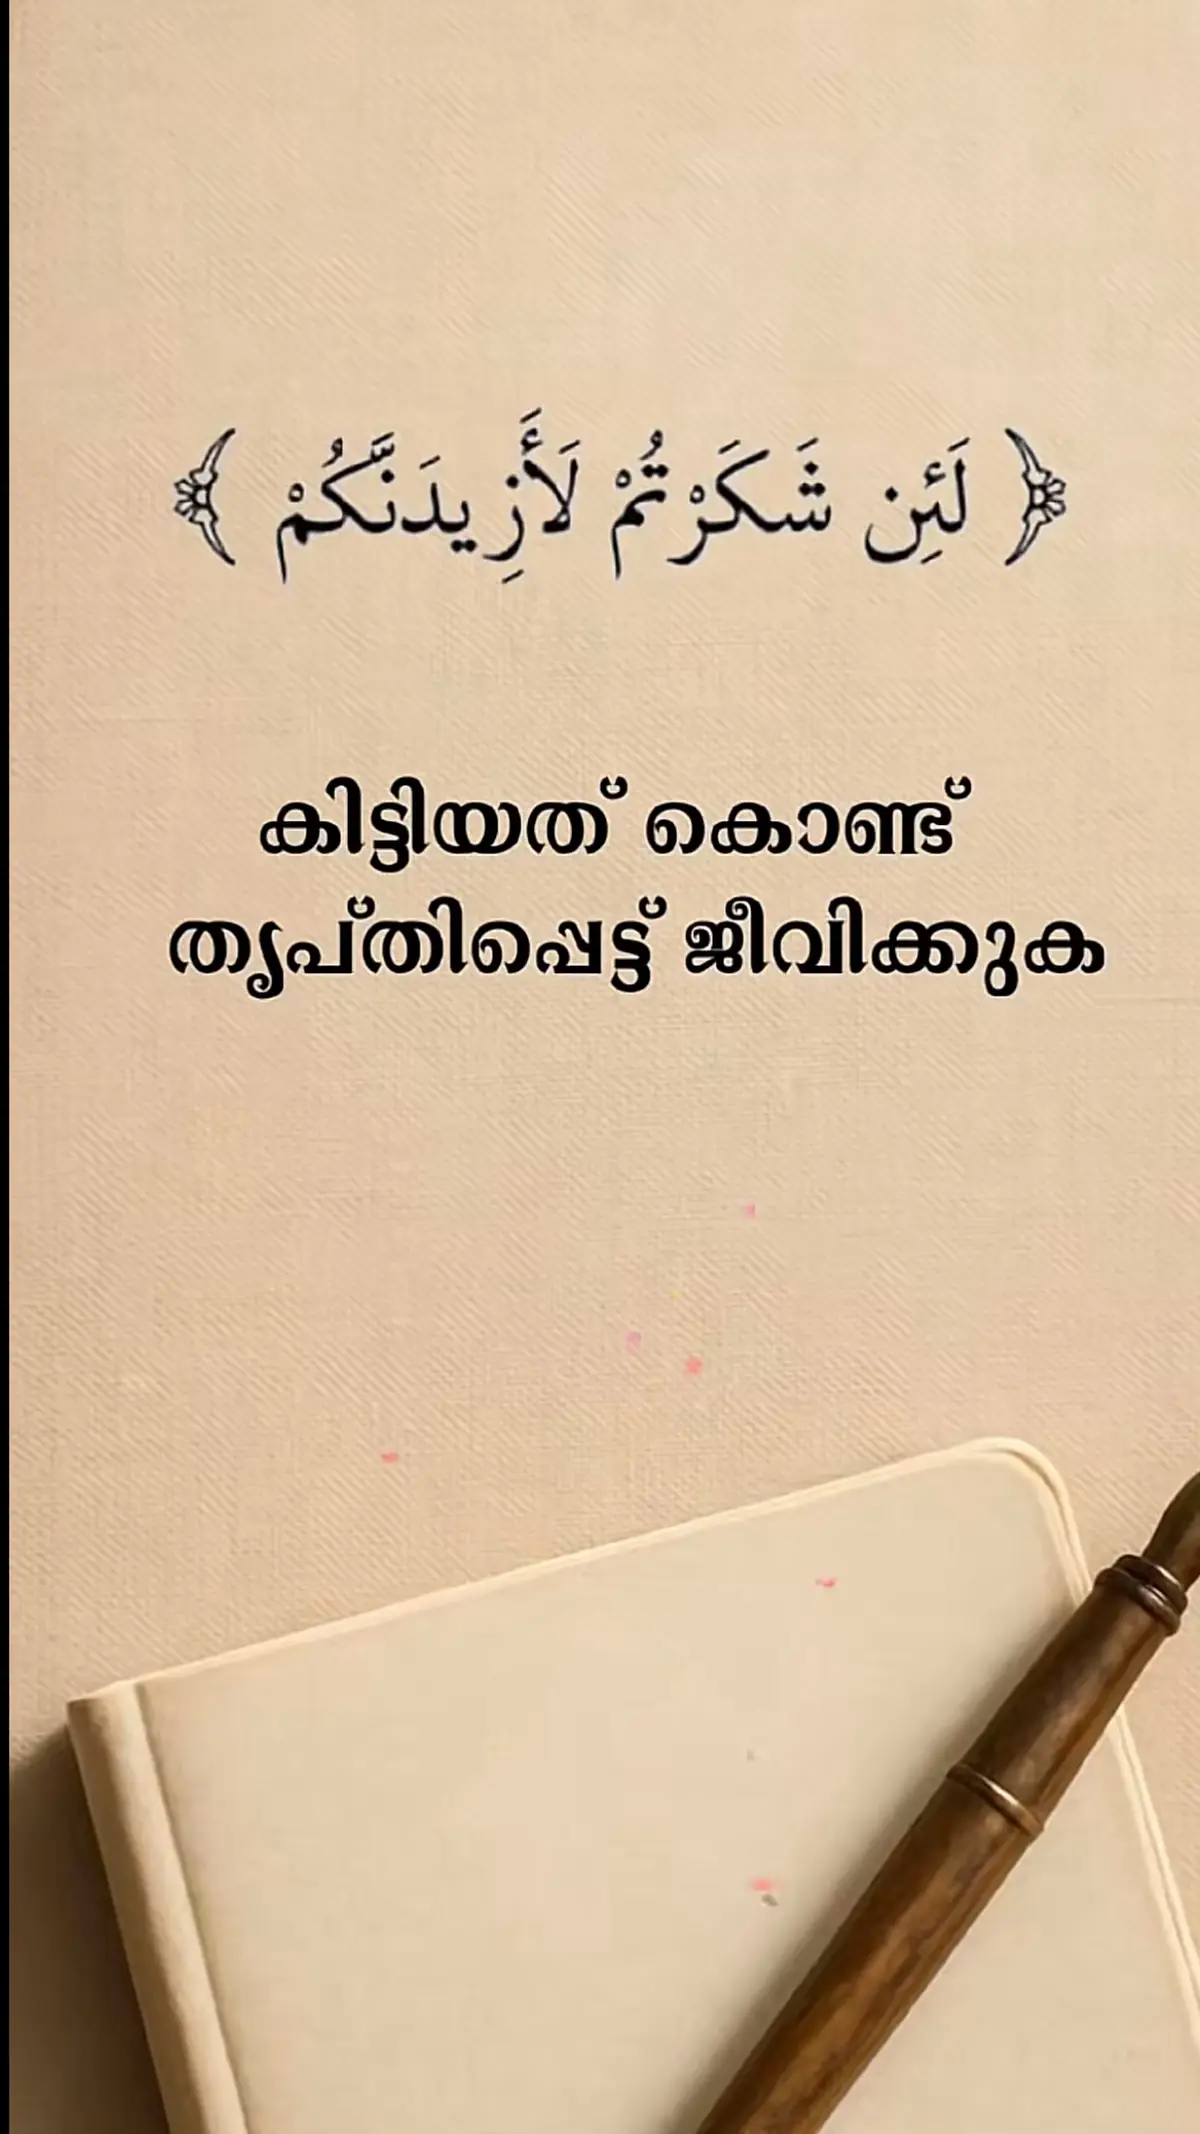 ﴿ لَئِن شَكَرْتُمْ لَأَزِيدَنَّكُمْ ﴾
കിട്ടിയത് കൊണ്ട്
തൃപ്തിപ്പെട്ട് ജീവിക്കുക